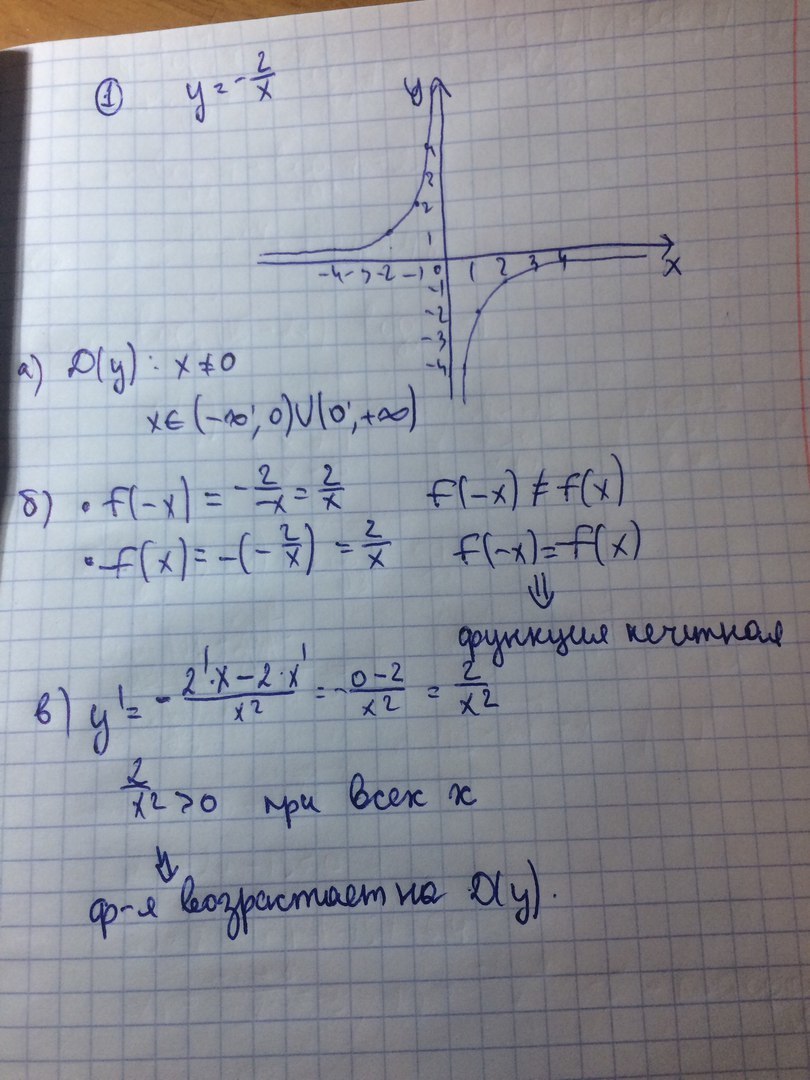 ① y = -2/x
y
4
3
2
1
-4 -3 -2 -1 0 1 2 3 4 x
-1
-2
-3
-4
а) D(y): x ≠ 0
x ∈ (-∞; 0) ∪ (0; +∞)
б) • f(-x) = -2/-x = 2/x f(-x) ≠ f(x)
• -f(x) = -(-2/x) = 2/x f(-x) = -f(x)
⇓
функция нечетная
в) y' = - (2'·x - 2·x')/x² = - (0-2)/x² = 2/x²
2/x² > 0 при всех x
⇓
ф-я возрастает на D(y).